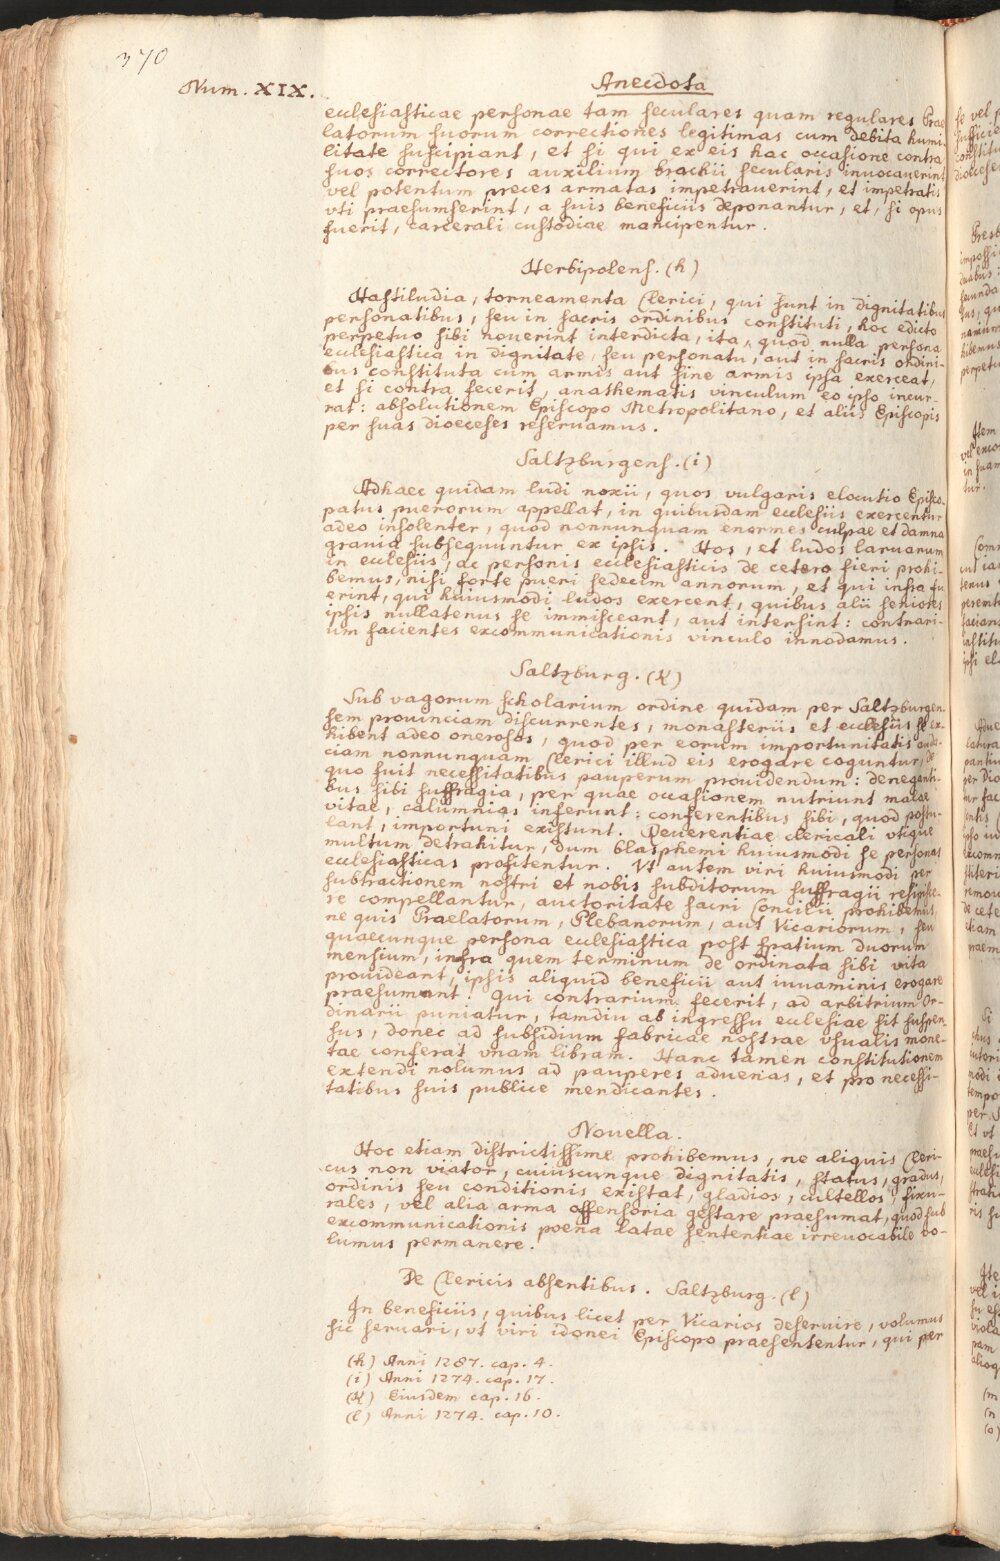 370
Num. XIX.
Anecdota
ecclesiasticae personae tam seculares quam regulares Prae
latorum suorum correctiones legitimas cum debita humi-
litate suscipiant, et si qui ex eis hac occasione contra
suos correctores auxilium brachii secularis inuocauerint
vel potentum preces armatas impetrauerint, et impetratis
vti praesumserint, a suis beneficiis deponantur, et, si opus
fuerit, carcerali custodiae mancipentur.
Herbipolens. (h)
Hastiludia, torneamenta Clerici, qui sunt in dignitatibus
personatibus, seu in sacris ordinibus constituti, hoc edicto
perpetuo sibi nouerint interdicta, ita, quod nulla persona
ecclesiastica in dignitate, seu personatu, aut in sacris ordini-
bus constituta cum armis aut sine armis ipsa exerceat,
et si contra fecerit, anathematis vinculum eo ipso incur-
rat: absolutionem Episcopo Metropolitano, et aliis Episcopis
per suas dioeceses reseruamus.
Saltzburgens. (i)
Adhaec quidam ludi noxii, quos vulgaris elocutio Episco-
patus puerorum appellat, in quibusdam ecclesiis exercentur
adeo insolenter, quod nonnunquam enormes culpae et damna
grauia subsequuntur ex ipsis. Hos, et ludos laruarum
in ecclesiis, ac personis ecclesiasticis de cetero fieri prohi-
bemus, nisi forte pueri sedecim annorum, et qui infra fu
erint, qui huiusmodi ludos exercent, quibus alii seniores
ipsis nullatenus se immisceant, aut intersint: contrari-
um facientes excommunicationis vinculo innodamus.
Saltzburg. (K)
Sub vagorum scholarium ordine quidam per Saltzburgen-
sem prouinciam discurrentes, monasteriis et ecclesiis se ex-
hibent adeo onerosos, quod per eorum importunitatis auda-
ciam nonnunquam Clerici illud eis erogare coguntur, de
quo fuit necessitatibus pauperum prouidendum: denegenti-
bus sibi suffragia, per quae occasionem nutriunt malae
vitae, calumnias inferunt: conferentibus sibi, quod postu-
lant, importuni existunt. Reuerentiae clericali vtique
multum detrahitur, dum blasphemi huiusmodi se personas
ecclesiasticas profitentur. Vt autem viri huiusmodi per
subtractionem nostri et nobis subditorum suffragii resipisce-
re compellantur, auctoritate sacri Concilii prohibemus,
ne quis Praelatorum, Plebanorum, aut Vicariorum, seu
quaecunque persona ecclesiastica post spatium duorum
mensium, infra quem terminum de ordinata sibi vita
prouideant, ipsis aliquid beneficii aut iuuaminis erogare
praesumant. Qui contrarium fecerit, ad arbitrium Or-
dinarii puniatur, tamdiu ab ingressu ecclesiae sit suspen-
sus, donec ad subsidium fabricae nostrae vsualis mone-
tae conferat vnam libram. Hanc tamen constitutionem
extendi nolumus ad pauperes aduenas, et pro necessi-
tatibus suis publice mendicantes.
Nouella.
Hoc etiam districtissime prohibemus, ne aliquis Cleri-
cus non viator, cuiuscunque dignitatis, status, gradus,
ordinis seu conditionis existat, gladios, cultellos, sixu-
rales, vel alia arma offensoria gestare praesumat, quod sub
excommunicationis poena latae sententiae irreuocabile vo-
lumus permanere.
De Clericis absentibus. Saltzburg. (l)
In beneficiis, quibus licet per Vicarios deseruire, volumus
sic seruari, vt viri idonei Episcopo praesententur, qui per
(h) Anni 1287. cap. 4.
(i) Anni 1274. cap. 17.
(K) Eiusdem cap. 16.
(l) Anni 1274. cap. 10.